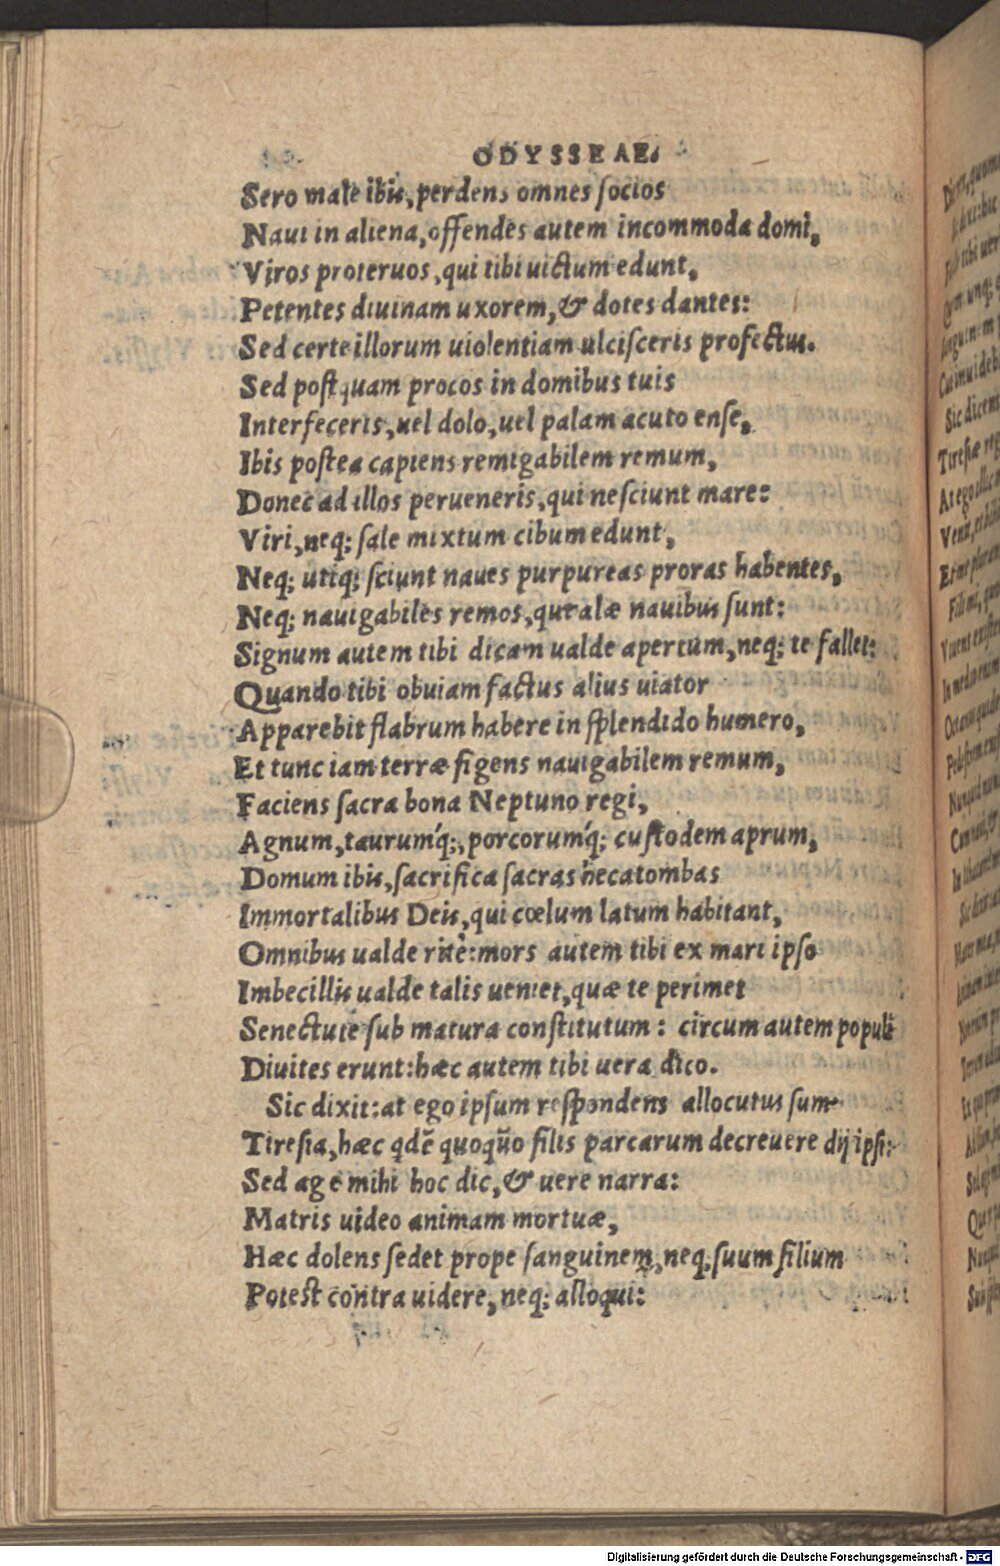 ODYSSEAE.
Sero male ibis, perdens omnes socios
Naui in aliena, offendes autem incommoda domi,
Viros proteruos, qui tibi uictum edunt,
Petentes diuinam uxorem, & dotes dantes:
Sed certe illorum uiolentiam ulcisceris profectus.
Sed postquam procos in domibus tuis
Interfeceris, uel dolo, uel palam acuto ense,
Ibis postea capiens remigabilem remum,
Donec ad illos perueneris, qui nesciunt mare:
Viri, neq; sale mixtum cibum edunt,
Neq; utiq; sciunt naues purpureas proras habentes,
Neq; nauigabiles remos, qui alæ nauibus sunt:
Signum autem tibi dicam ualde apertum, neq; te fallet:
Quando tibi obuiam factus alius uiator
Apparebit flabrum habere in splendido humero,
Et tunc iam terræ figens nauigabilem remum,
Faciens sacra bona Neptuno regi,
Agnum, taurumq́;, porcorumq́; custodem aprum,
Domum ibis, sacrifica sacras hecatombas
Immortalibus Deis, qui cœlum latum habitant,
Omnibus ualde ritè: mors autem tibi ex mari ipso
Imbecillis ualde talis ueniet, quæ te perimet
Senectute sub matura constitutum: circum autem populi
Diuites erunt: hæc autem tibi uera dico.
Sic dixit: at ego ipsum respondens allocutus sum
Tiresia, hæc qdē quoqūo filis parcarum decreuere dij ipsi:
Sed age mihi hoc dic, & uere narra:
Matris uideo animam mortuæ,
Hæc dolens sedet prope sanguinem, neq; suum filium
Potest contra uidere, neq; alloqui:
Digitalisierung gefördert durch die Deutsche Forschungsgemeinschaft - DFG